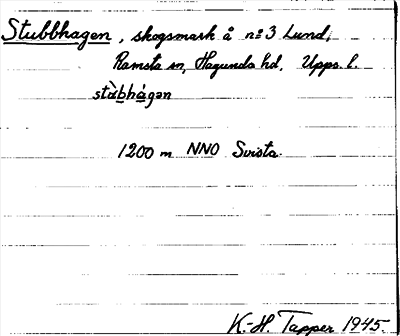 Stubbhagen, skogsmark å nº 3 Lund,
Ramsta sn, Hagunda hd, Upps. l.
stàbhágən
1200 m NNO Svista.
K.-H. Tapper 1945.